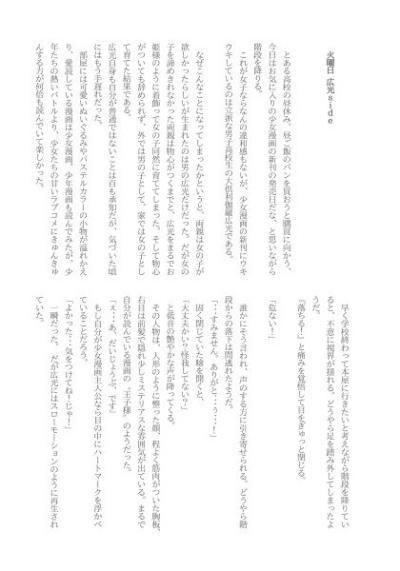 火曜日 広光ｓｉｄｅ
とある高校の昼休み、昼ご飯のパンを買おうと購買に向かう。
今日はお気に入りの少女漫画の新刊の発売日だな、と思いながら
階段を降りる。
これが女子ならなんの違和感もないが、少女漫画の新刊にウキ
ウキしているのは立派な男子高校生の大倶利伽羅広光である。
なぜこんなことになってしまったかというと、両親は女の子が
欲しかったらしいが生まれたのは男の広光だけだった。だが女の
子を諦めきれなかった両親は物心がつくまでと、広光をまるでお
姫様のように着飾って女の子同然に育ててしまった。そして物心
がついても辞められず、外では男の子として、家では女の子とし
て育てた結果である。
広光自身も自分が普通ではないことは百も承知だが、気づいた頃
にはもう手遅れだった。
部屋には可愛いぬいぐるみやパステルカラーの小物が溢れかえ
り、愛読している漫画は少女漫画。少年漫画も読んでみたが、少
年たちの熱いバトルより、少女たちの甘いラブコメにきゅんきゅ
んする方が何倍も読んでいて楽しかった。
早く学校終わって本屋に行きたいと考えながら階段を降りてい
ると、不意に視界が揺れる。どうやら足を踏み外してしまったよ
うだ。
「落ちる！」と痛みを覚悟して目をぎゅっと閉じる。
「危ない！」
誰かにそう言われ、声のする方に引き寄せられる。どうやら階
段からの落下は間逃れたようだ。
「…すみません、ありがと…っ…！」
固く閉じていた瞼を開くと、
「大丈夫かい？怪我してない？」
と低音の艶やかな声が降ってくる。
その人物は、人形のように整った顔、程よく筋肉がついた胸板、
右目は前髪で隠れ少しミステリアスな雰囲気が出ている。まるで
自分が読んでいる漫画の『王子様』のようだった。
「え…あ、だいじょうぶ、です」
もし自分が少女漫画主人公なら目の中にハートマークを浮かべ
ていることだろう。
「よかった…気をつけてね！じゃ！」
一瞬だった。だが広光にはスローモーションのように再生され
ていた。